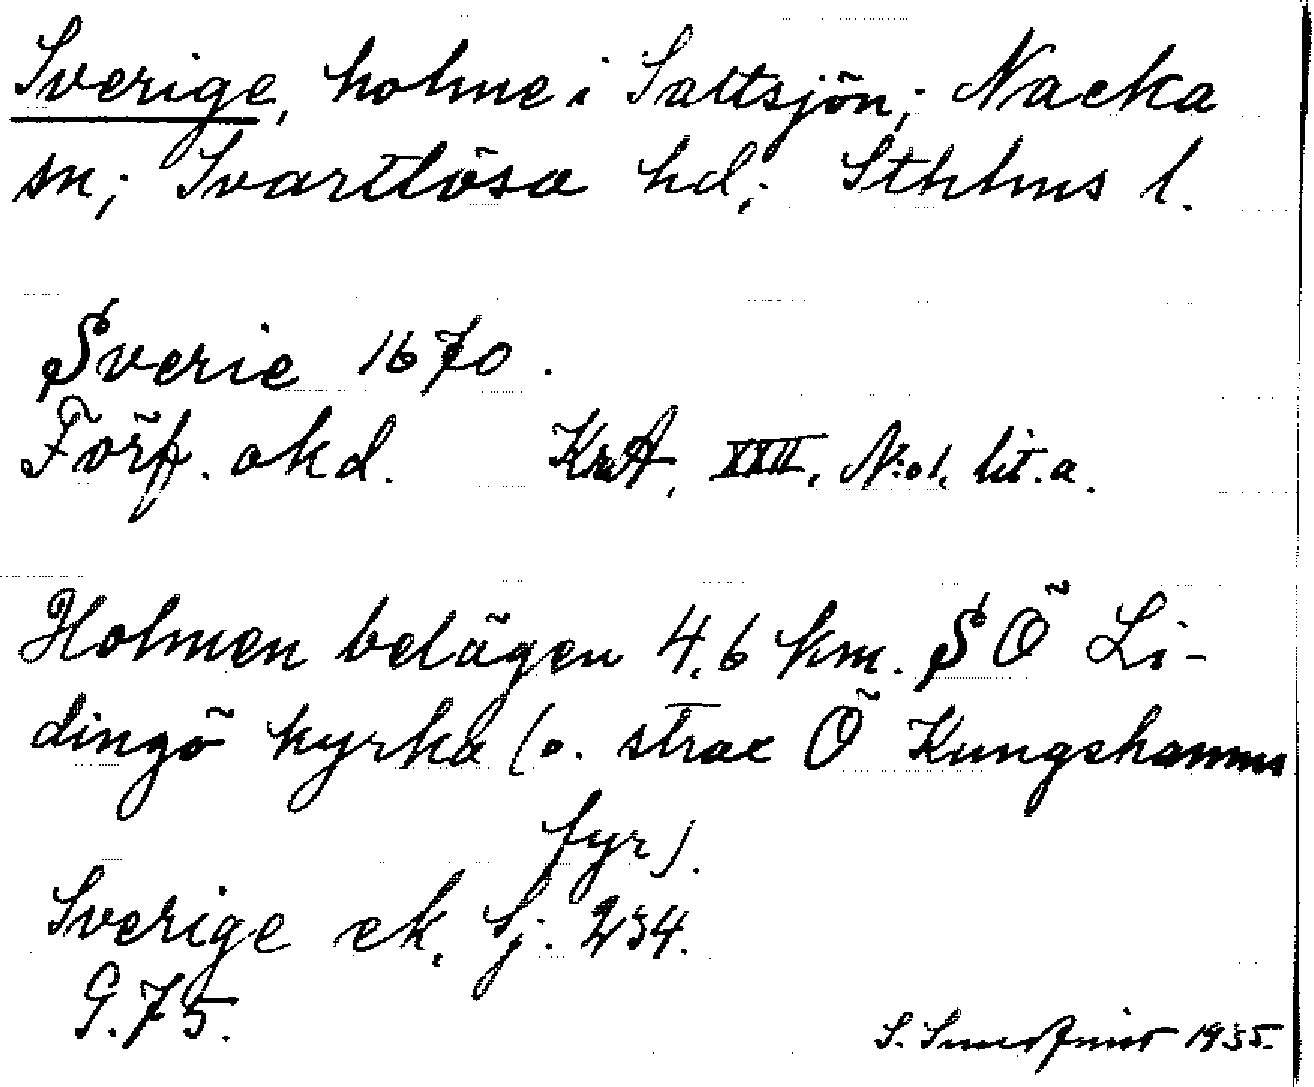 Sverige, holme i Saltsjön; Nacka
sn; Svartlösa hd; Sthlms l.
Sverie 1670.
Förf. okd. KrA, XXII, N:o 1. lit. a.
Holmen belägen 4,6 km. S Ö Li-
dingö kyrka (o. strax Ö Kungshamns
fyr).
Sverige ek. Sj. 234.
G. 75.
S. 1935.